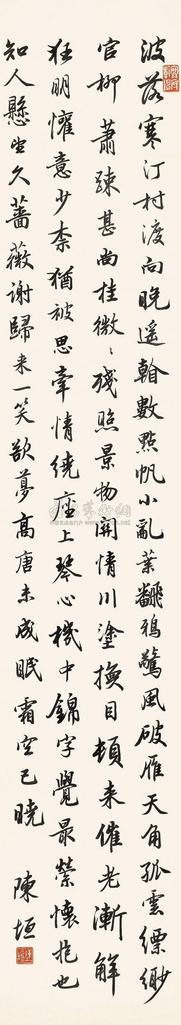 波落寒汀村渡向晚遙看數點帆小亂葉翻鴉驚風破雁天角孤雲縹緲
官柳蕭疎甚尚挂微〻殘照景物關情川塗換目頓來催老漸解
狂朋懽意少柰猶被思牽情繞座上琴心機中錦字覺最縈懷抱也
知人懸望久薔薇謝歸来一笑欲夢高唐未成眠霜空已曉 陳垣